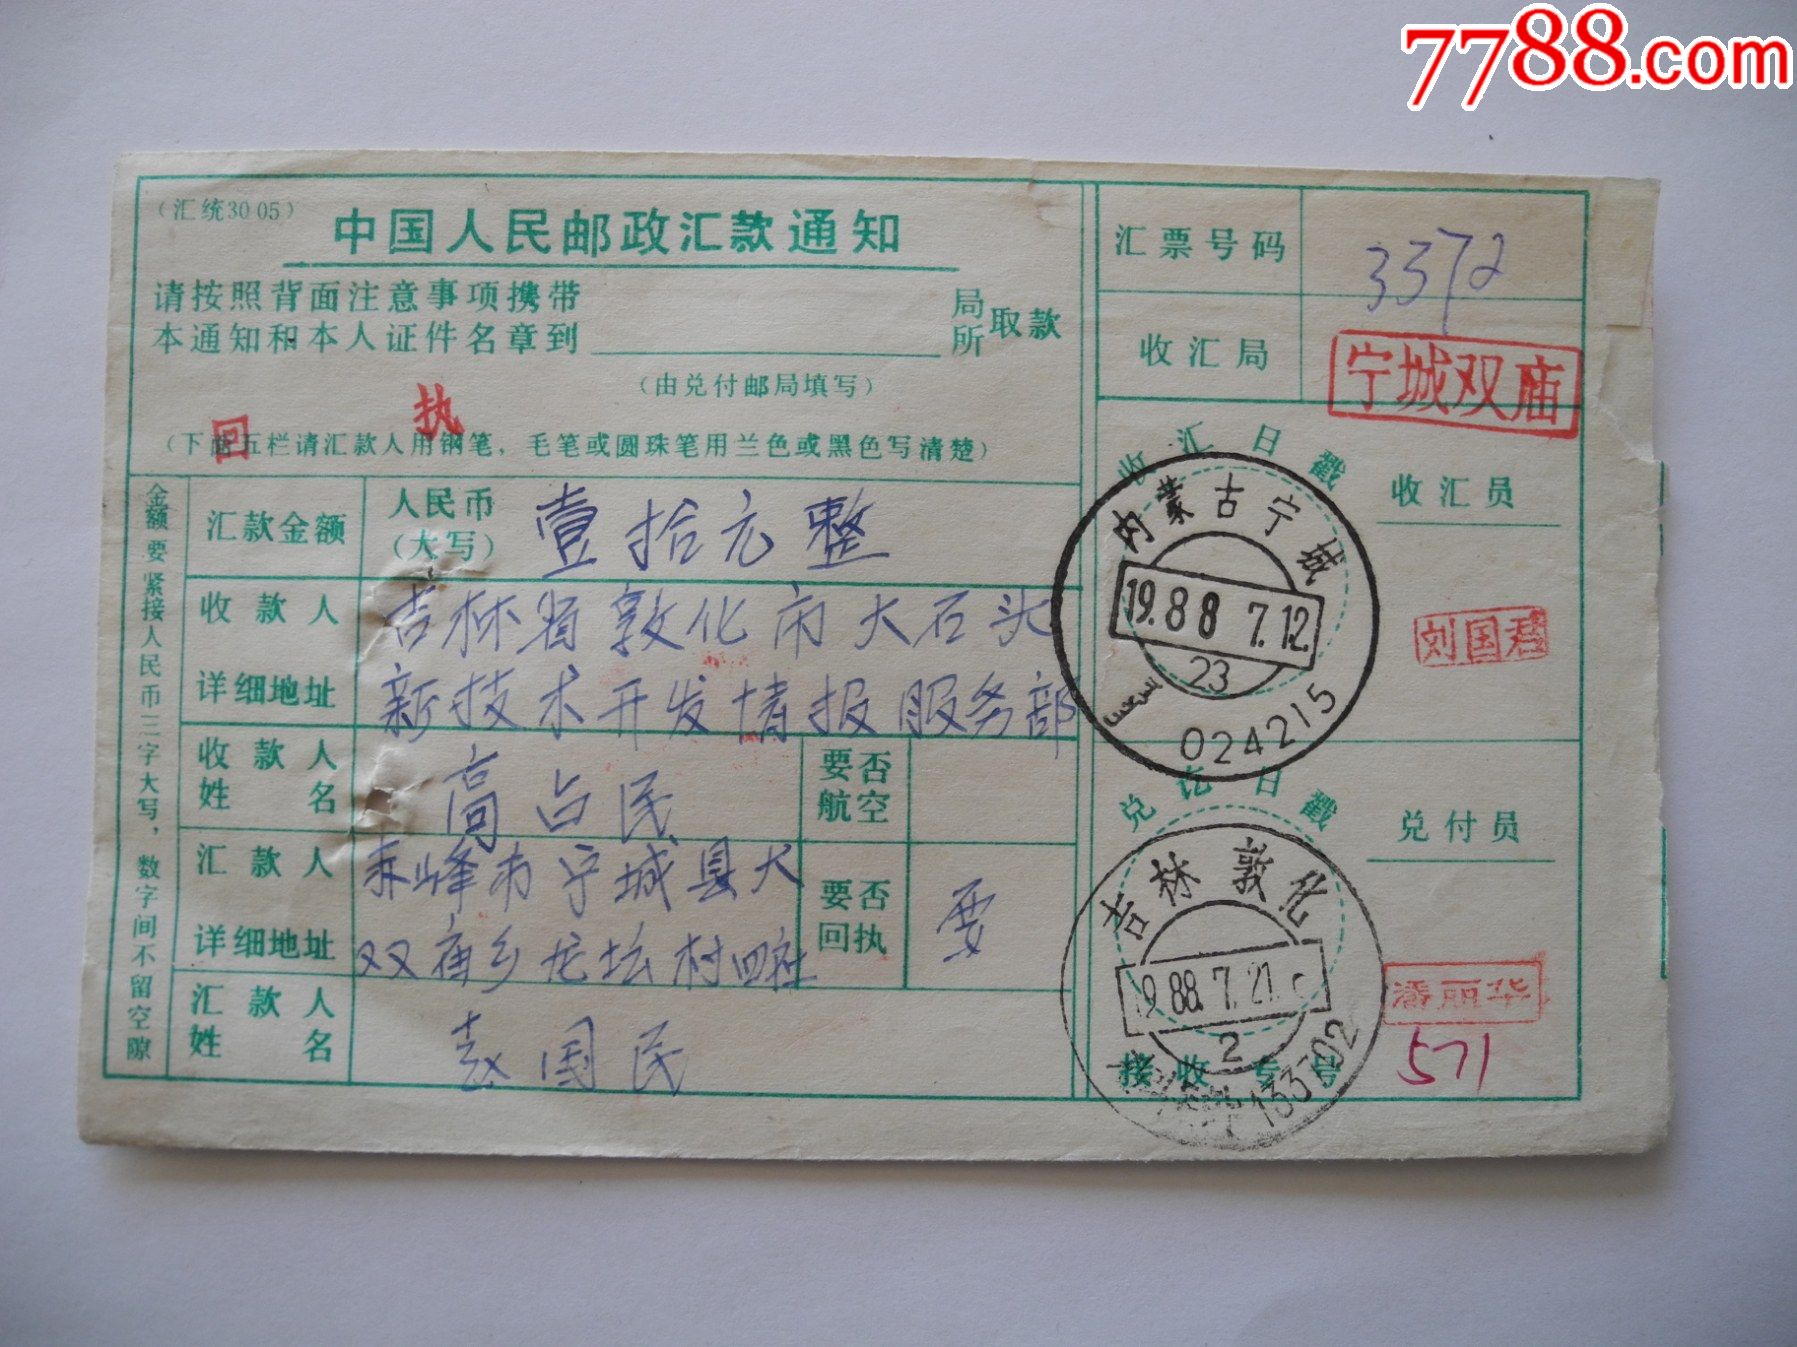 7788.com
（汇统3005）
中国人民邮政汇款通知
请按照背面注意事项携带
本通知和本人证件名章到
局
所
取款
（由兑付邮局填写）
回执
（下面五栏请汇款人用钢笔，毛笔或圆珠笔用兰色或黑色写清楚）
金额要紧接人民币三字大写，数字间不留空隙
汇款金额
人民币
（大写）
壹拾元整
收款人
详细地址
吉林省敦化市大石头
新技术开发情报服务部
收款人
姓名
高占民
要否
航空
汇款人
详细地址
赤峰市宁城县大
双庙乡龙坛村四社
要否
回执
要
汇款人
姓名
国民
汇票号码
3372
收汇局
宁城双庙
收汇日戳
内蒙古宁城
19.88 7.12
23
024215
收汇员
刘国君
兑讫日戳
吉林敦化
19.88.7.21
2
133702
兑付员
潘丽华
接收专
571